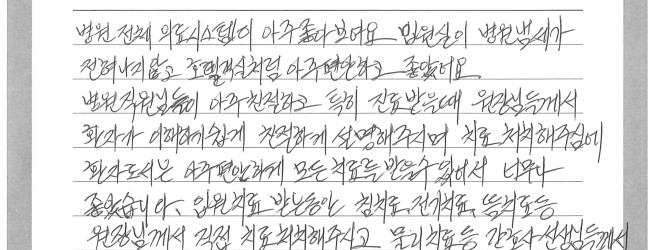 병원 전체 의료시스템이 아주 좋다 보여요 입원실이 병원냄새가
전혀나지않고 호텔객실처럼 아주편안하고 좋았어요.
병원직원님들이 아주친절하고 특히 진료받을때 원장님들께서
환자가 이해하기쉽게 친절하게 설명해주시며 치료,처치해주심에
환자로서는 아주편안하게 모든치료를 받을수 있어서 너무나
좋았습니다. 입원치료 받는동안 침치료,전기치료,뜸치료등
원장님께서 직접 치료처치해주시고 물리치료등 간호사선생님들께서